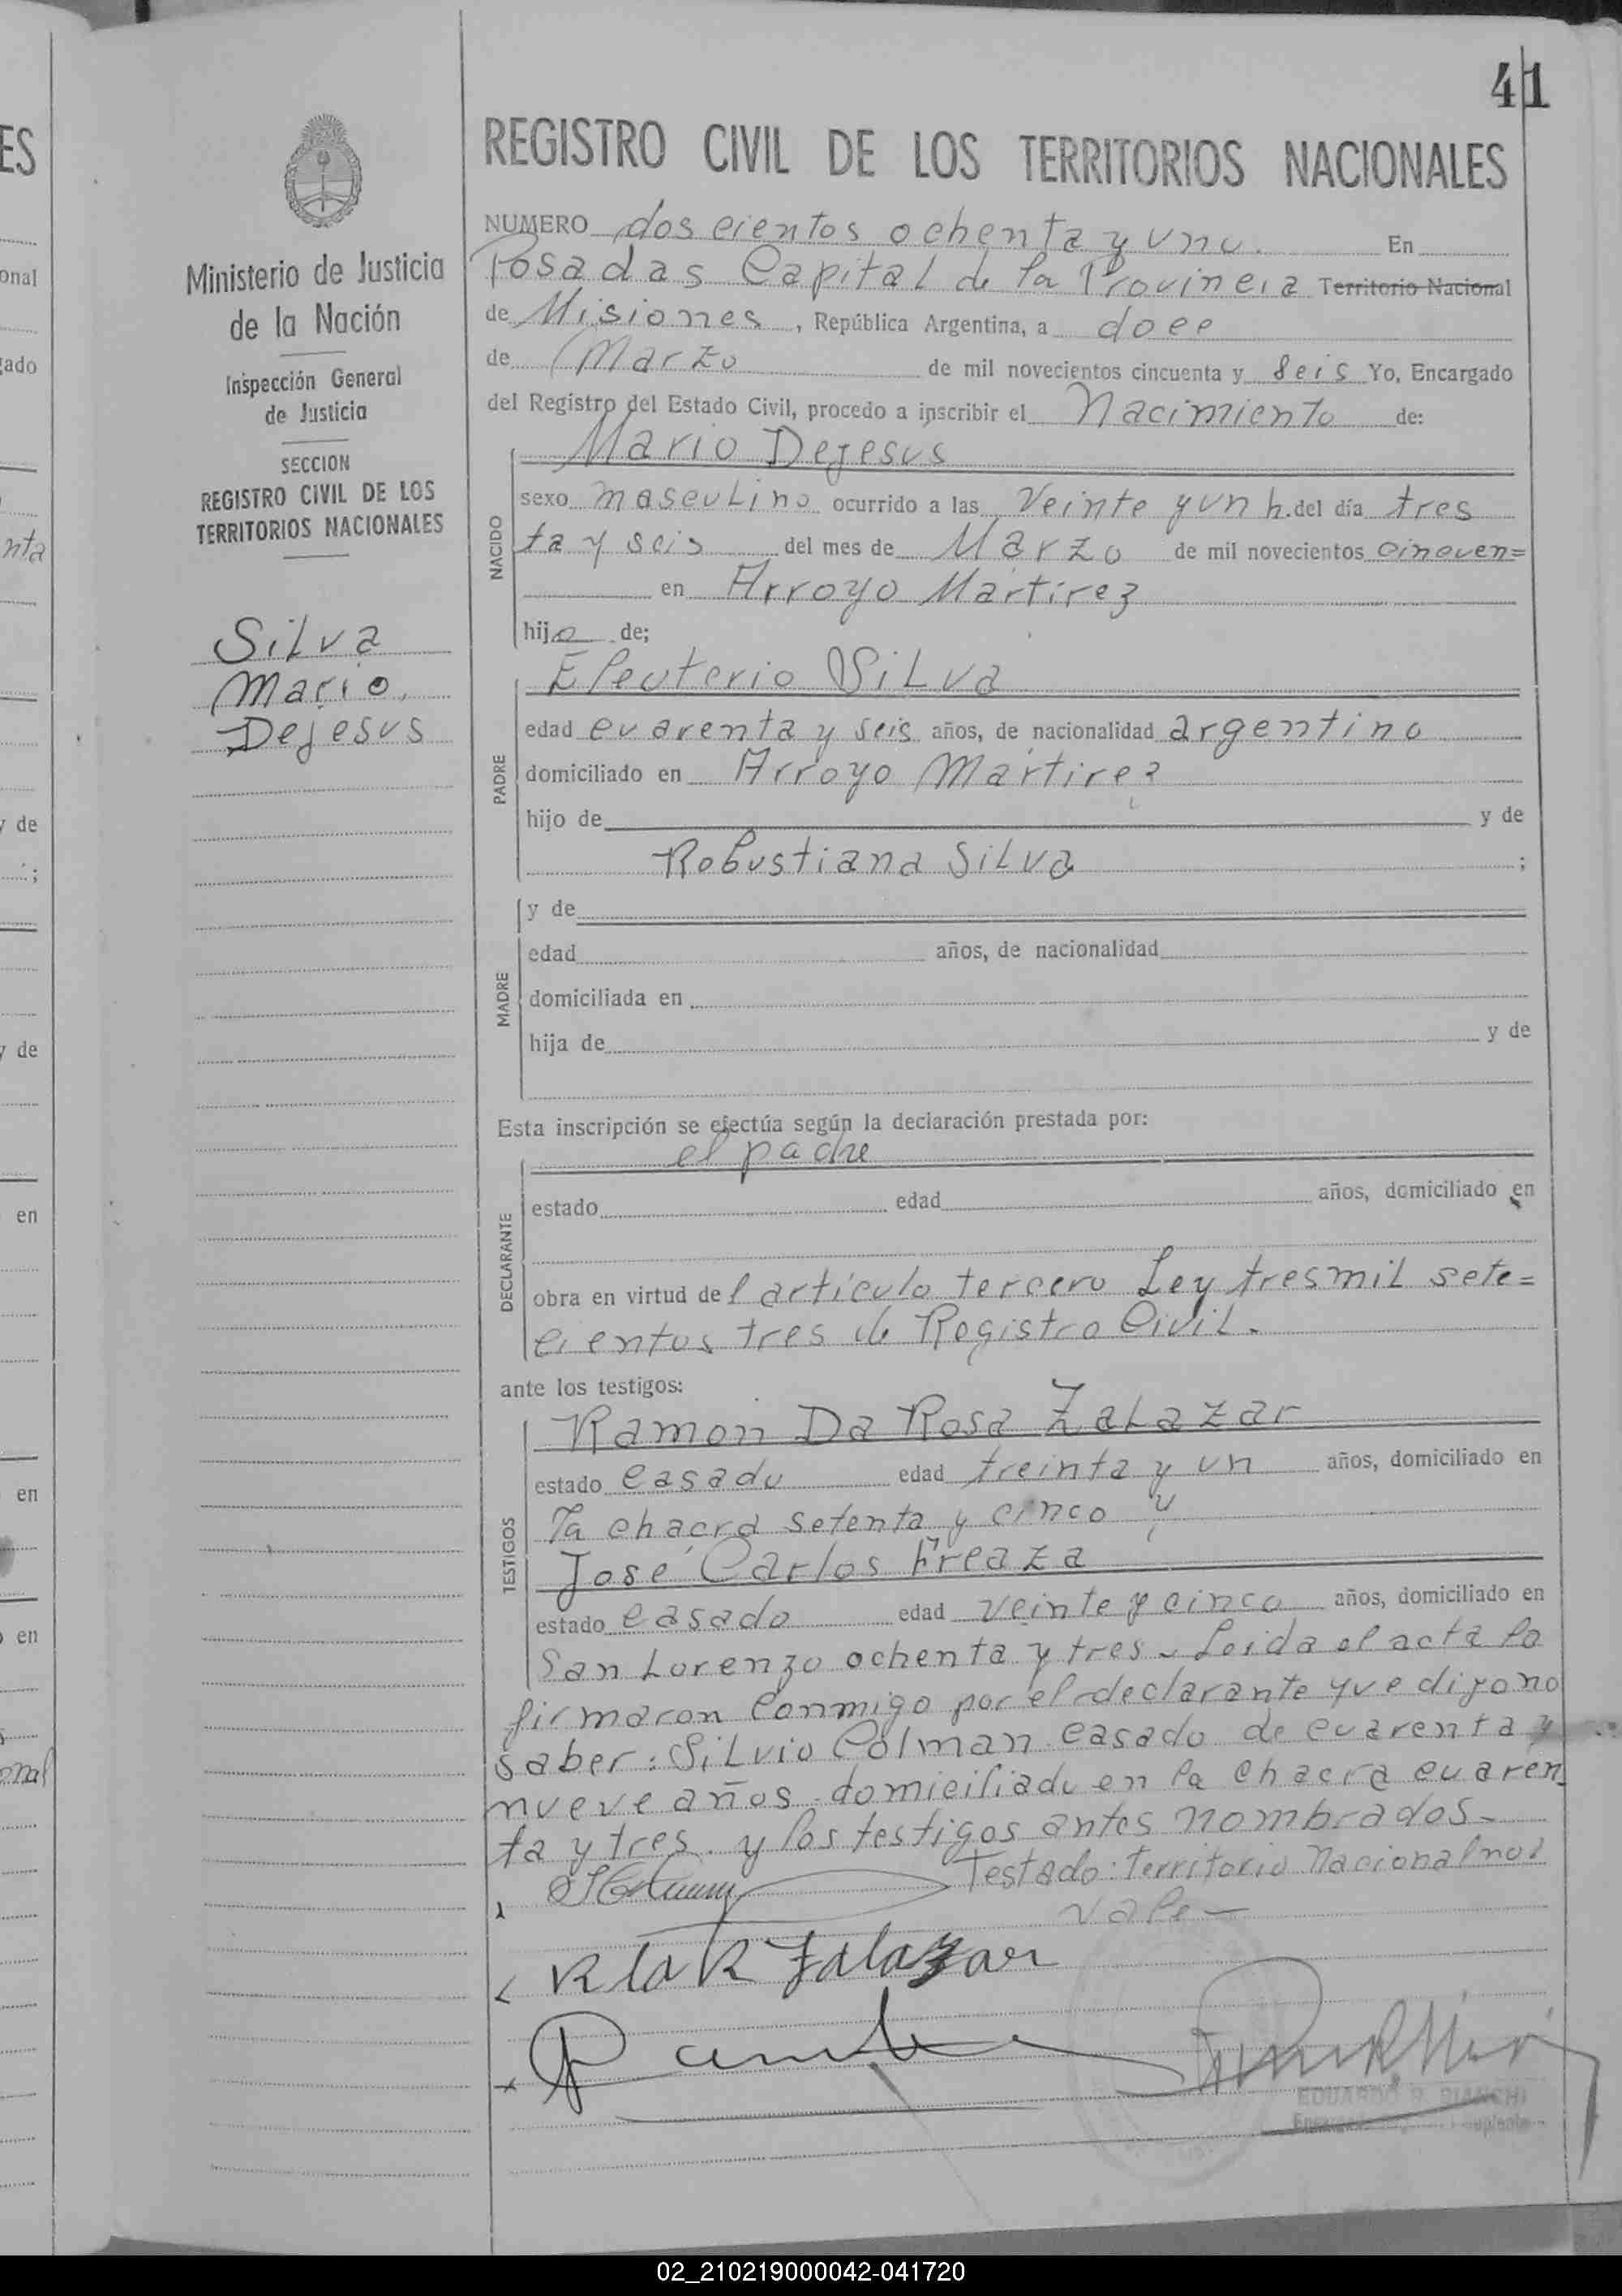 41
REGISTRO CIVIL DE LOS TERRITORIOS NACIONALES
NUMERO dos cientos ochenta y uno. En
Posadas Capital de la Provincia Territorio Nacional
de Misiones, República Argentina, a doce
de Marzo de mil novecientos cincuenta y seis Yo, Encargado
del Registro del Estado Civil, procedo a inscribir el Nacimiento de:
Mario Dejesus
NACIDO
sexo masculino ocurrido a las veinte y un h. del día tres
del mes de Marzo de mil novecientos cincuen=
ta y seis en Arroyo Martirez
hijo de;
Eleuterio Silva
PADRE
edad cuarenta y seis años, de nacionalidad argentino
domiciliado en Arroyo Martirez
hijo de y de
Robustiana Silva ;
MADRE
y de
edad años, de nacionalidad
domiciliada en
hija de y de
Esta inscripción se efectúa según la declaración prestada por:
el padre
DECLARANTE
estado edad años, domiciliado en
obra en virtud del artículo tercero Ley tres mil sete=
cientos tres de Registro Civil.
ante los testigos:
TESTIGOS
Ramón Da Rosa Zalazar
estado casado edad treinta y un años, domiciliado en
la chacra setenta y cinco y
José Carlos Freaza
estado casado edad veinte y cinco años, domiciliado en
San Lorenzo ochenta y tres. Leida el acta la
firmaron conmigo por el declarante que dijo no
saber: Silvio Colman casado de cuarenta y
nueve años domiciliado en la chacra cuaren
ta y tres. y los testigos antes nombrados.
Testado: Territorio Nacional no
vale
Zalazar
EDUARDO R. BIANCHI
Suplente
Ministerio de Justicia
de la Nación
Inspección General
de Justicia
SECCION
REGISTRO CIVIL DE LOS
TERRITORIOS NACIONALES
Silva
Mario
Dejesus
ES
onal
gado
nta
y de
;
y de
en
en
en
onal
02_210219000042-041720